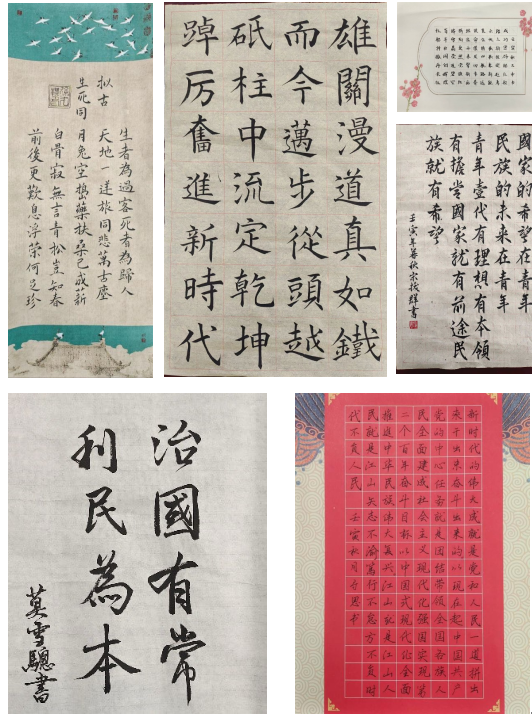 生者為過客死者為歸人
拟古
天地一逆旅同悲萬古塵
生死同
月兔空搗藥扶桑已成薪
白骨寂無言青松豈知春
前後更歎息浮榮何足珍
雄關漫道真如鐵
而今邁步從頭越
砥柱中流定乾坤
踔厉奮進新時代
國家的希望在青年
民族的未來在青年
青年壹代有理想有本領
有擔當國家就有前途民
族就有希望
壬寅年暮秋宋振輝書
治國有常
利民為本
莫雪驄書
新时代的伟大成就是党和人民一道拼出
来干出来奋斗出来的从现在起中国共产
党的中心任务就是团结带领全国各族人
民全面建成社会主义现代化强国实现第
二个百年奋斗目标以中国式现代化全面
推进中华民族伟大复兴江山就是江山人
民就是江山矢志不渝笃行不怠方不负时
代不负人民 壬寅秋月